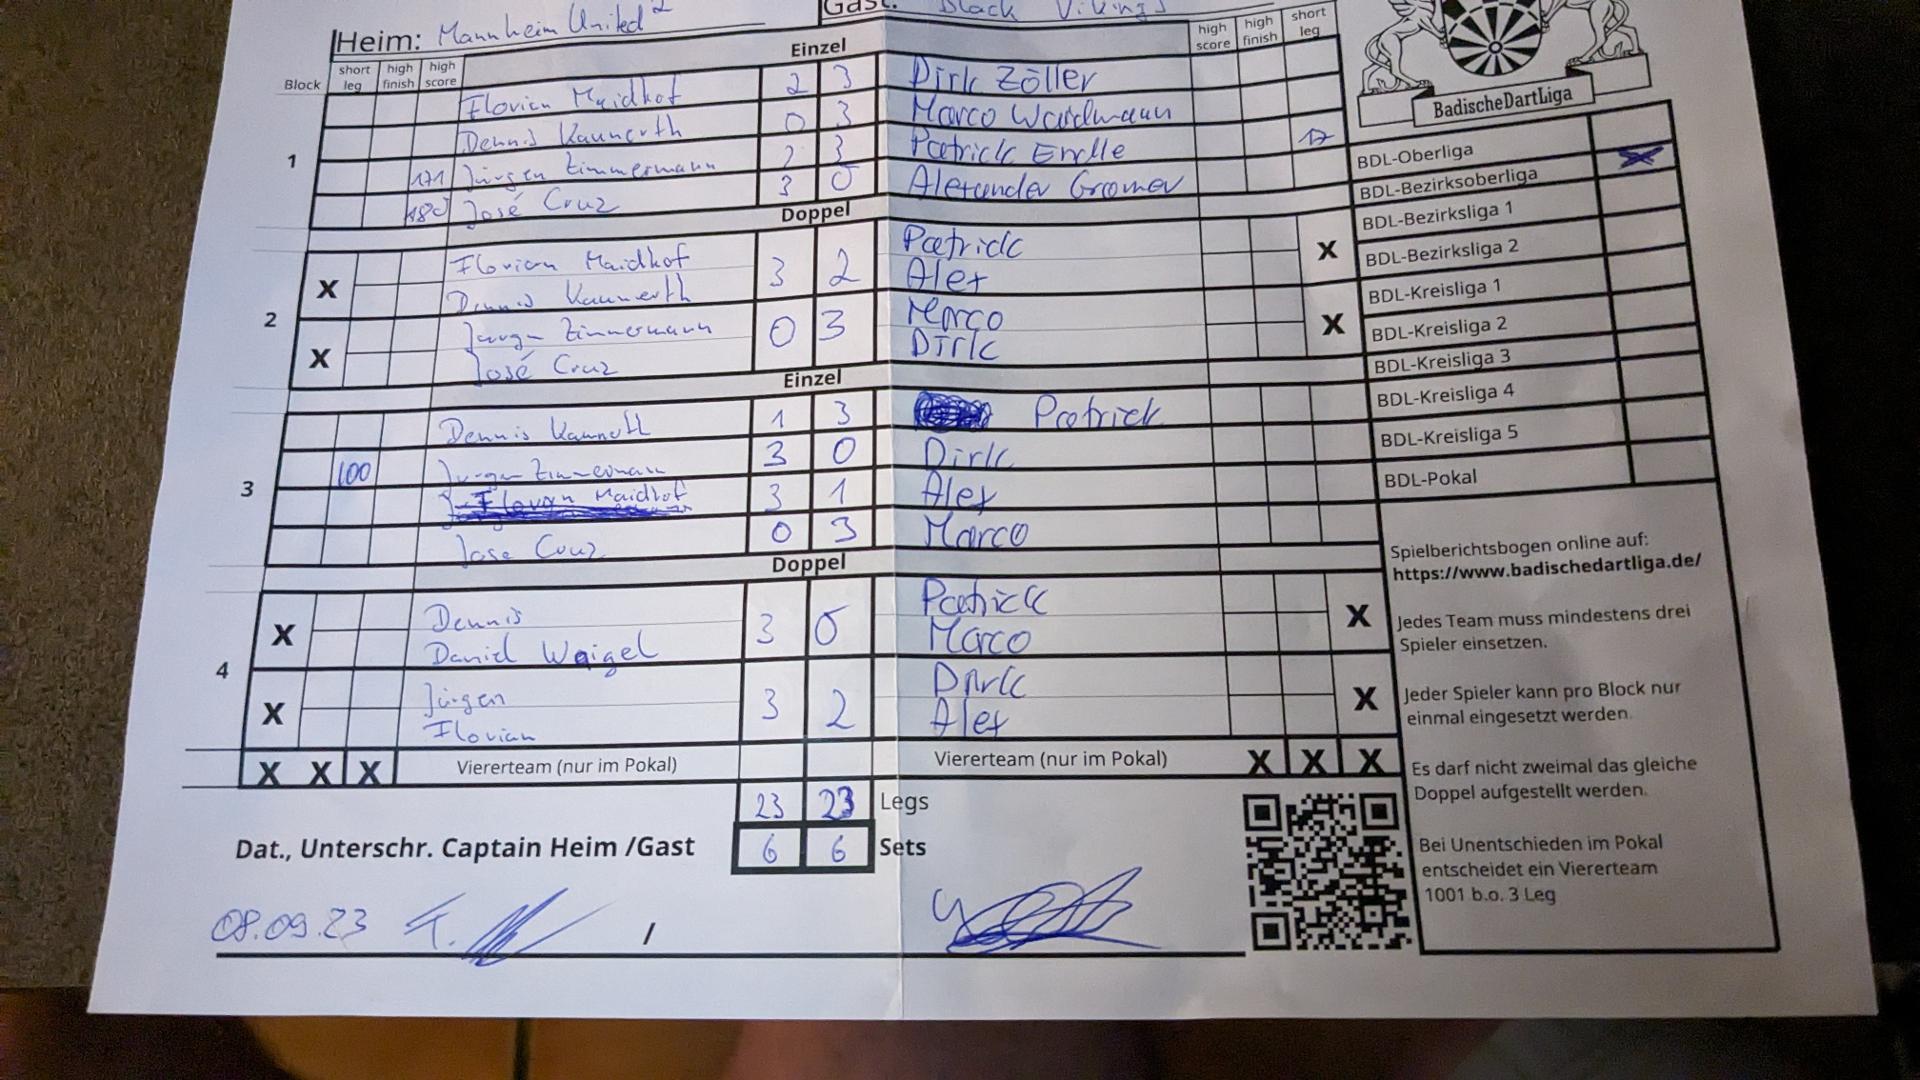 Heim: Mannheim United 2 Gast: Black Vikings
Einzel
Block short leg high finish high score high score high finish short leg
1
Florian Maidhof 2 3 Dirk Zöller
Dennis Kannerth 0 3 Marco Waidmann
171 Jürgen Zimmermann 2 3 Patrick Endle 17
180 José Cruz 3 0 Alexander Gromer
Doppel
2
X Florian Maidhof 3 2 Patrick X
Dennis Kannerth Alex
X Jürgen Zimmermann 0 3 Marco X
José Cruz Dirk
Einzel
3
Dennis Kannerth 1 3 Patrick
100 Jürgen Zimmermann 3 0 Dirk
Florian Maidhof 3 1 Alex
Jose Cruz 0 3 Marco
Doppel
4
X Dennis 3 0 Patrick X
Daniel Weigel Marco
X Jürgen 3 2 Dirk X
Florian Alex
X X X Vierterteam (nur im Pokal) Vierterteam (nur im Pokal) X X X
23 23 Legs
6 6 Sets
Dat., Unterschr. Captain Heim /Gast
08.09.23 /
BadischeDartLiga
BDL-Oberliga
BDL-Bezirksoberliga X
BDL-Bezirksliga 1
BDL-Bezirksliga 2
BDL-Kreisliga 1
BDL-Kreisliga 2
BDL-Kreisliga 3
BDL-Kreisliga 4
BDL-Kreisliga 5
BDL-Pokal
Spielberichtsbogen online auf:
https://www.badischedartliga.de/
Jedes Team muss mindestens drei
Spieler einsetzen.
Jeder Spieler kann pro Block nur
einmal eingesetzt werden.
Es darf nicht zweimal das gleiche
Doppel aufgestellt werden.
Bei Unentschieden im Pokal
entscheidet ein Viererteam
1001 b.o. 3 Leg